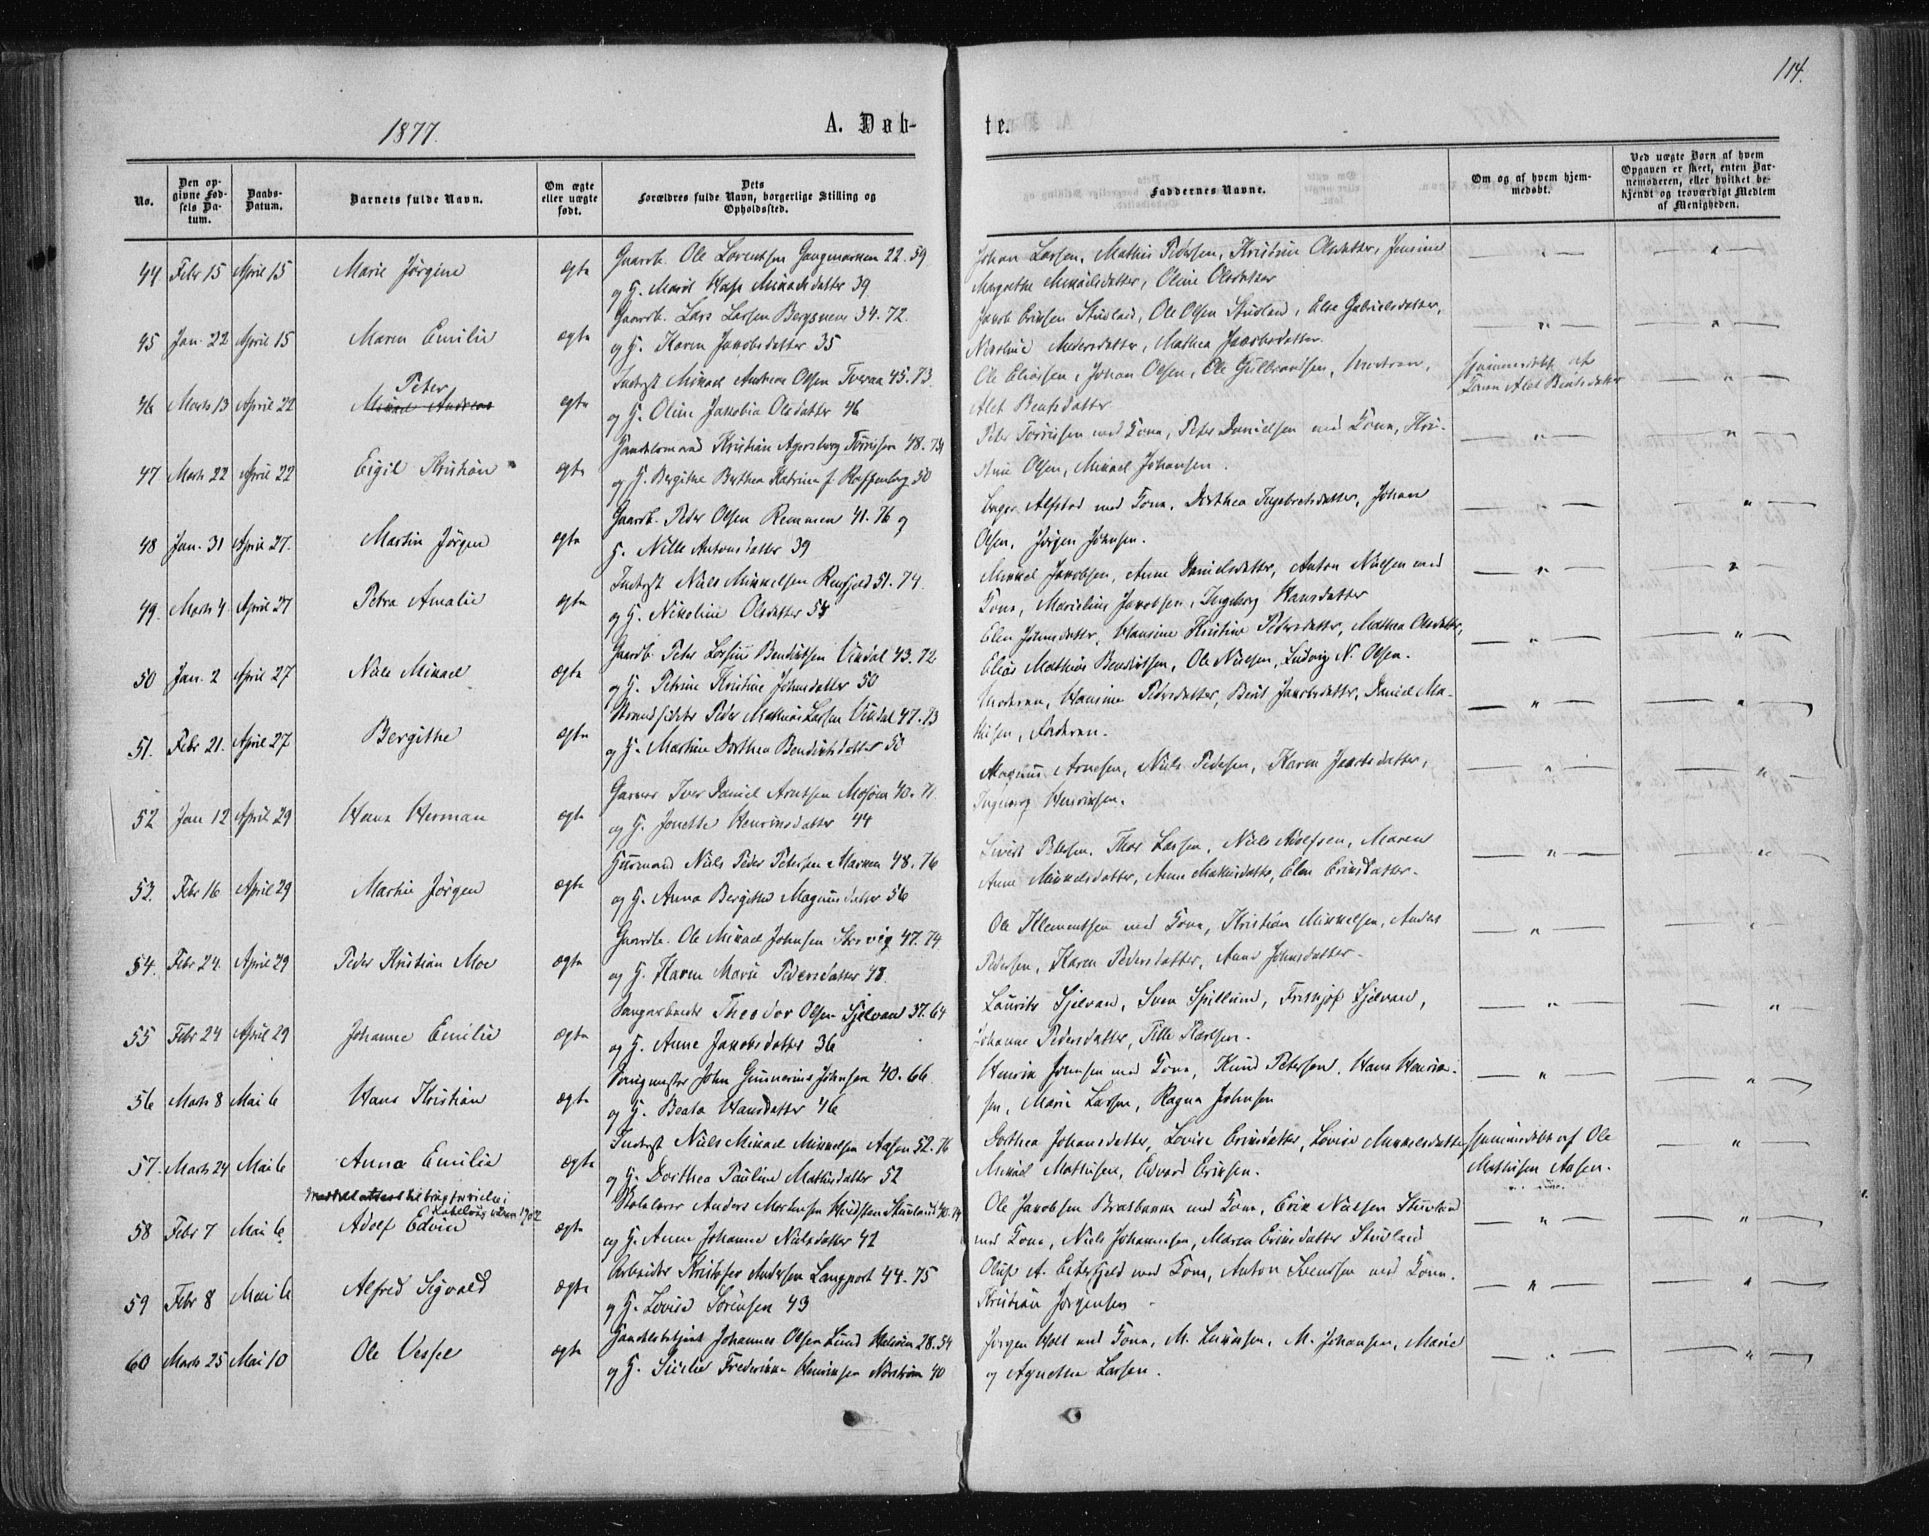 114.
1877.
A. Døb-
te.
No.
Den op-
givne Fød-
sels Da-
tum.
Daabs-
Datum.
Barnets fulde Navn.
Om ægte
eller uægte
født.
Dets
Forældres fulde Navn, borgerlige Stilling og
Opholdssted.
Faddernes Navne.
Om og af hvem hjem-
medøbt.
Ved uægte Børn af hvem
Opgaven er skeet, enten Bar-
nemoderen, eller hvilket be-
kjendt og troværdigt Medlem
af Menigheden.
44 Febr 15 April 15 Marie Jørgine ægte
Gaardb. Ole Lorentsen 22. 59
og H. Marit Mikalsdatter 39
Johan Larsen, Mathis Pedersen, Kristine Olsdatter, Jensine
Margrethe Mikalsdatter, Oline Olsdatter
45 Jan. 22 April 15 Maren Emilie ægte
Gaardb. Lars Larsen 34. 72.
og H. Karen Jakobsdatter 35
Jakob Eriksen Studland, Ole Olsen Studland, Else Gabrielsdatter,
Nikoline Andersdatter, Mathea Jakobsdatter.
46 Marts 13 April 22 Peter
Mikael Andreas ægte
Inderst Mikael Andreas Olsen Tveraa 45. 73
og H. Oline Jakobia Olsdatter 46
Ole Eliasen, Johan Olsen, Ole Gulbrandsen, Moderen,
Alet Bentsdatter
Hjemmedøbt af
Kona Alet Bentsdatter
47 Marts 22 April 22 Eigil Kristian ægte
Handelsmand Kristian Agersborg Tørrisen 48. 73
og H. Bergithe Berthea Katrine f. 50
Peter Tørrisen med Kona, Peter Danielsen med Kona, Kri-
stine Olsen, Mikael Johansen.
48 Jan. 31 April 27. Martin Jørgen ægte
Gaardb. Peder Olsen Remmen 41. 76 og
H. Nille Antonsdatter 39
Alstad med Kona, Dorthea Ingebretsdatter, Johan
Olsen, Jørgen Johnsen.
49. Marts 4 April 27 Petra Amalie ægte
Inderst Nils Mikkelsen 51. 74
og H. Nikoline Olsdatter 54
Mikkel Jakobsen, Anne Danielsdatter, Anton Nielsen med
Kona, Marselius Jakobsen, Ingeborg Hansdatter
50 Jan. 2 April 27 Nils Mikael ægte
Gaardb. Peter Bendiktsen Vikdal 43. 72
og H. Petrine Kristine Johnsdatter 50
Elen Johnsdatter, Hansine Kristine Pedersdatter, Mathea Olsdatter,
Elias Mathias Bendiktsen, Ole Nielsen, Ludvig N. Olsen.
51. Febr 21. April 27 Bergithe ægte
Strandsidder Peder Mathias Larsen Vikdal 47. 73
og H. Martine Dorthea Bendiktsdatter 50
Moderen, Hansine Pedersdatter, Berit Jakobsdatter, Daniel Ma-
thisen, Faderen.
52 Jan 12 April 29 Hans Herman ægte
Garver Iver Daniel Arntsen Mosjøen 40. 71
og H. Jonette Henriksdatter 44
Magnus Arnesen, Niels Pedersen, Karen Jakobsdatter,
Ingeborg Henriksen.
53. Febr 16 April 29 Martin Jørgen ægte
Husmand Niels Peder Petersen Marken 48. 76
og H. Anna Bergithe Magnusdatter 56
Sivert Petersen, Thor Larsen, Niels Adolfsen, Maren
Anne Mikkelsdatter, Anne Mathisdatter, Elen Eriksdatter.
54. Febr 24. April 29 Peder Kristian Moe ægte
Gaardb. Ole Mikael Johnsen Storvig 47. 74
og H. Karen Marie Pedersdatter 48.
Ole Klementsen med Kona, Kristian Mikkelsen, Anders
Pedersen, Karen Pedersdatter, Anne Johnsdatter.
55 Febr 24 April 29 Johanne Emilie ægte
Theodor Olsen Sjelvan 37. 64
og H. Anne Jakobsdatter 36
Laurits Sjelvan, Sven Spillum, Frithjof Sjelvan,
Johanne Pedersdatter, Tille Karlsen.
56 Marts 8 Mai 6 Hans Kristian ægte
John Gunnerius Johnsen 40. 66
og H. Beata Hansdatter 46
Henrik Jensen med Kona, Knud Petersen, Hans Henrik-
sen, Marie Larsen, Ragna Johnsen
57. Marts 24 Mai 6 Anna Emilie ægte
Inderst Niels Mikael Mikkelsen Aasen 52. 76
og H. Dorthea Pauline Mathisdatter 52
Dorthea Johansdatter, Lovise Eriksdatter, Lovise Mikkelsdatter
Mikael Mathisen, Edvard Eriksen.
Hjemmedøbt af Ole
Mathisen Aasen.
58 Febr 7 Mai 6 Adolf Edvin ægte
Skolelærer Anders Mortensen 40. 74
og H. Anne Johanne Nielsdatter 42
Ole Jakobsen med Kona, Erik Nielsen Studland
med Kona, Niels Johannesen, Maren Eriksdatter Studland
59 Febr 8 Mai 6 Alfred Sigvald ægte
Arbeider Kristofer Andersen Langport 44. 75
og H. Lovise Sørensen 43
Oluf A. med Kona, Anton Svendsen med Kona.
Kristian Jørgensen.
60 Marts 25 Mai 10 Ole Vessel ægte
Johannes Olsen Lund 28. 54
og H. Frederikke Henriksen Norstrøm 40
Jørgen Holt med Kona, M. M. Johansen, Marie
og Agnethe Larsen.